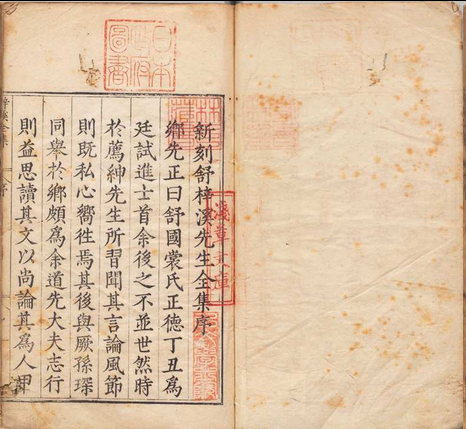 新刻舒梓溪先生全集序
鄉先正曰舒國裳氏正德丁丑爲
廷試進士首余後之不並世然時
於薦紳先生所習聞其言論風節
則既私心嚮徃焉其後與厥孫琛
同舉於鄉頗爲余道先大夫志行
則益思讀其文以尚論其爲人甲
梓溪全集
序
淺草文庫
日本
圖書
林